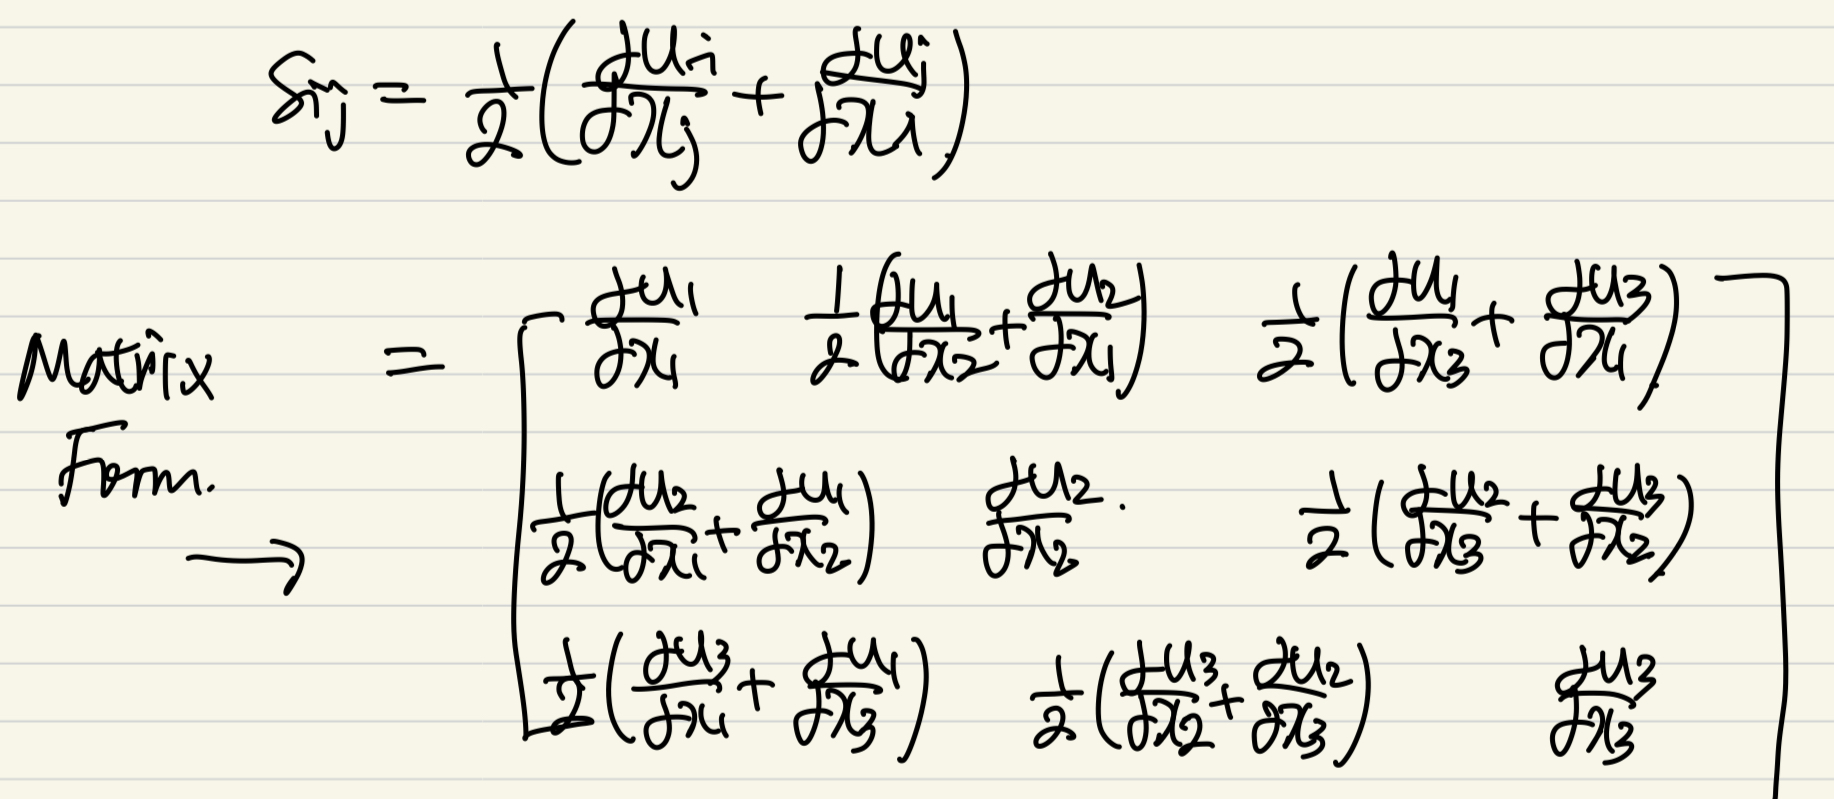 Sij = 1/2 (∂ui/∂xj + ∂uj/∂xi)
Matrix Form. → = [ ∂u1/∂x1   1/2 (∂u1/∂x2 + ∂u2/∂x1)   1/2 (∂u1/∂x3 + ∂u3/∂x1)
1/2 (∂u2/∂x1 + ∂u1/∂x2)   ∂u2/∂x2 .   1/2 (∂u2/∂x3 + ∂u3/∂x2)
1/2 (∂u3/∂x1 + ∂u1/∂x3)   1/2 (∂u3/∂x2 + ∂u2/∂x3)   ∂u3/∂x3 ]